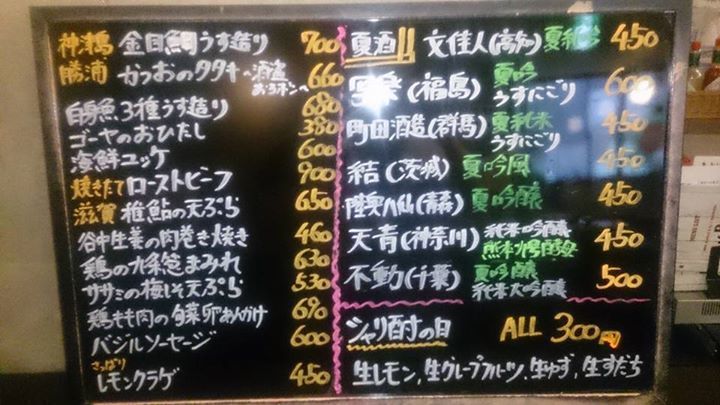 神津島 金目鯛うす造り 700
勝浦 かつおのタタキ 〜酒盗おろポン〜 660
白身魚3種うす造り 680
ゴーヤのおひたし 380
海鮮ユッケ 600
焼きたてローストビーフ 900
滋賀 稚鮎の天ぷら 650
谷中生姜の肉巻き焼き 460
鶏の九条葱まみれ 630
ササミの梅しそ天ぷら 530
鶏もも肉の旬菜卵あんかけ 690
バジルソーセージ 600
さっぱり
レモンクラゲ 450
夏酒!!
文佳人(高知) 夏純吟 450
写楽(福島) 夏吟 うすにごり 600
町田酒造(群馬) 夏純米 うすにごり 450
結(茨城) 夏吟風 450
陸奥八仙(青森) 夏吟醸 450
天青(神奈川) 純米吟醸 450
不動(千葉) 夏吟醸 純米大吟醸 500
シャリ酎の日 ALL 300円
生レモン,生グレープフルーツ,生ゆず,生すだち